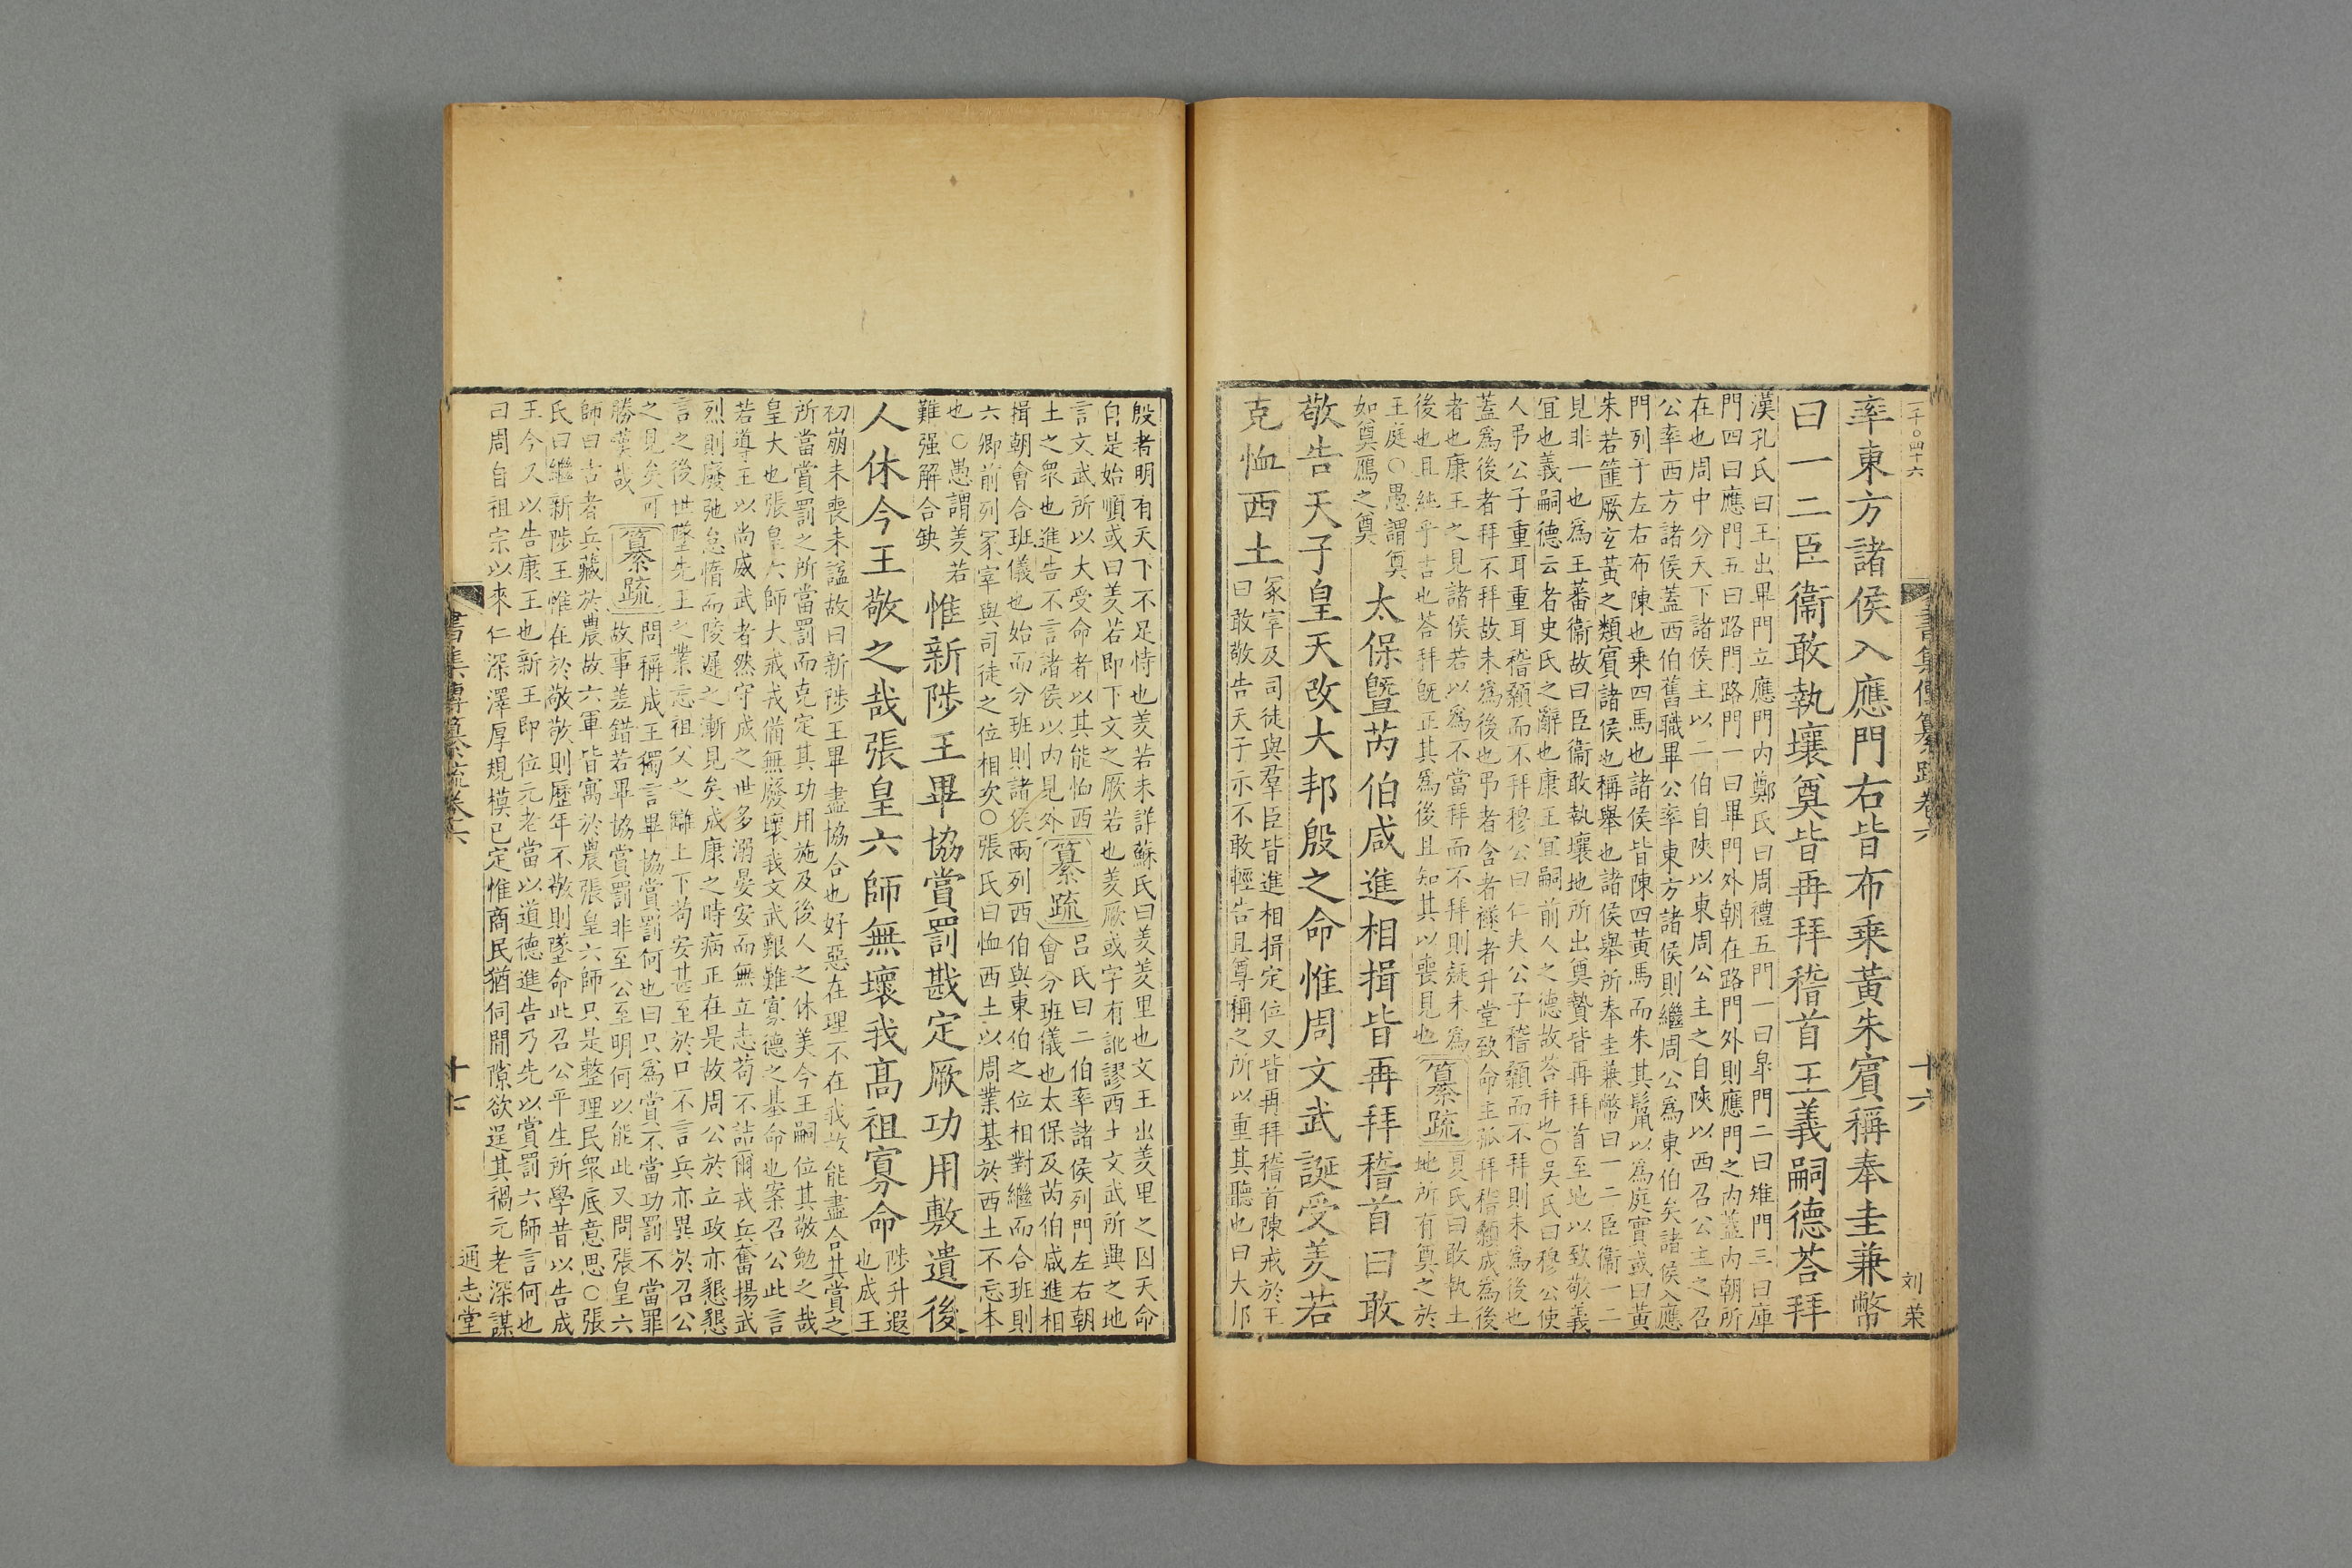 率東方諸侯入應門右皆布乗黃朱賔稱奉圭兼幣
曰一二臣衞敢執壤奠皆再拜稽首王義嗣德荅拜
漢孔氏曰王出畢門立應門内鄭氏曰周禮五門一曰臯門二曰雉門三曰庫
門四曰應門五曰路門路門一曰畢門外朝在路門外則應門之内蓋内朝所
在也周中分天下諸侯主以二伯自陝以東周公主之自陝以西召公主之召
公率西方諸侯蓋西伯舊職畢公率東方諸侯則繼周公爲東伯矣諸侯入應
門列于左右布陳也乗四馬也諸侯皆陳四黃馬而朱其鬛以爲庭實或曰黃
朱若篚厥玄黃之類賔諸侯也稱舉也諸侯舉所奉圭兼幣曰一二臣衞一二
見非一也爲王蕃衞故曰臣衞敢執壤地所出奠贄皆再拜首至地以致敬義
宜也義嗣德云者史氏之辭也康王宜嗣前人之德故荅拜也○吳氏曰穆公使
人弔公子重耳重耳稽顙而不拜穆公曰仁夫公子稽顙而不拜則未爲後也
蓋爲後者拜不拜故未爲後也弔者含者襚者升堂致命主孤拜稽顙成爲後
者也康王之見諸侯若以爲不當拜而不拜則疑未爲
後也且純乎吉也荅拜旣正其爲後且知其以喪見也纂疏夏氏曰敢執土地所有奠之於
王庭○愚謂奠
如奠鴈之奠
太保曁芮伯咸進相揖皆再拜稽首曰敢
敬告天子皇天改大邦殷之命惟周文武誕受羑若
克恤西土
冢宰及司徒與羣臣皆進相揖定位又皆再拜稽首陳戒於王
曰敢敬告天子示不敢輕告且尊稱之所以重其聽也曰大邦
書集傳纂疏卷六
十六
刘荣
殷者明有天下不足恃也羑若未詳蘇氏曰羑羑里也文王出羑里之囚天命
自是始順或曰羑若即下文之厥若也羑厥或字有訛謬西土文武所興之地
言文武所以大受命者以其能恤西
土之衆也進告不言諸侯以内見外纂疏呂氏曰二伯率諸侯列門左右朝
會分班儀也太保及芮伯咸進相
揖朝會合班儀也始而分班則諸侯兩列西伯與東伯之位相對繼而合班則
六卿前列冢宰與司徒之位相次○張氏曰恤西土以周業基於西土不忘本
也○愚謂羑若
難强解合缺
惟新陟王畢協賞罰戡定厥功用敷遺後
人休今王敬之哉張皇六師無壞我高祖寡命
陟升遐
也成王
初崩未喪未諡故曰新陟王畢盡協合也好惡在理不在我故能盡合其賞之
所當賞罰之所當罰而克定其功用施及後人之休美今王嗣位其敬勉之哉
皇大也張皇六師大戒戎備無廢壞我文武艱難寡德之基命也案召公此言
若導王以尚威武者然守成之世多溺晏安而無立志苟不詰爾戎兵奮揚武
烈則廢弛怠惰而陵遲之漸見矣成康之時病正在是故周公於立政亦懇懇
言之後世墜先王之業忘祖父之讎上下苟安甚至於口不言兵亦異於召公
之見矣可
勝嘆哉纂疏問稱成王獨言畢協賞罰何也曰只爲賞不當功罰不當罪
故事差錯若畢協賞罰非至公至明何以能此又問張皇六
師曰古者兵藏於農故六軍皆寓於農張皇六師只是整理民衆底意思○張
氏曰繼新陟王惟在於敬敬則歷年不敬則墜命此召公平生所學昔以告成
王今又以告康王也新王即位元老當以道德進告乃先以賞罰六師言何也
曰周自祖宗以來仁深澤厚規模已定惟商民猶伺閒隙欲逞其禍元老深謀
書集傳纂疏卷六
十七
通志堂